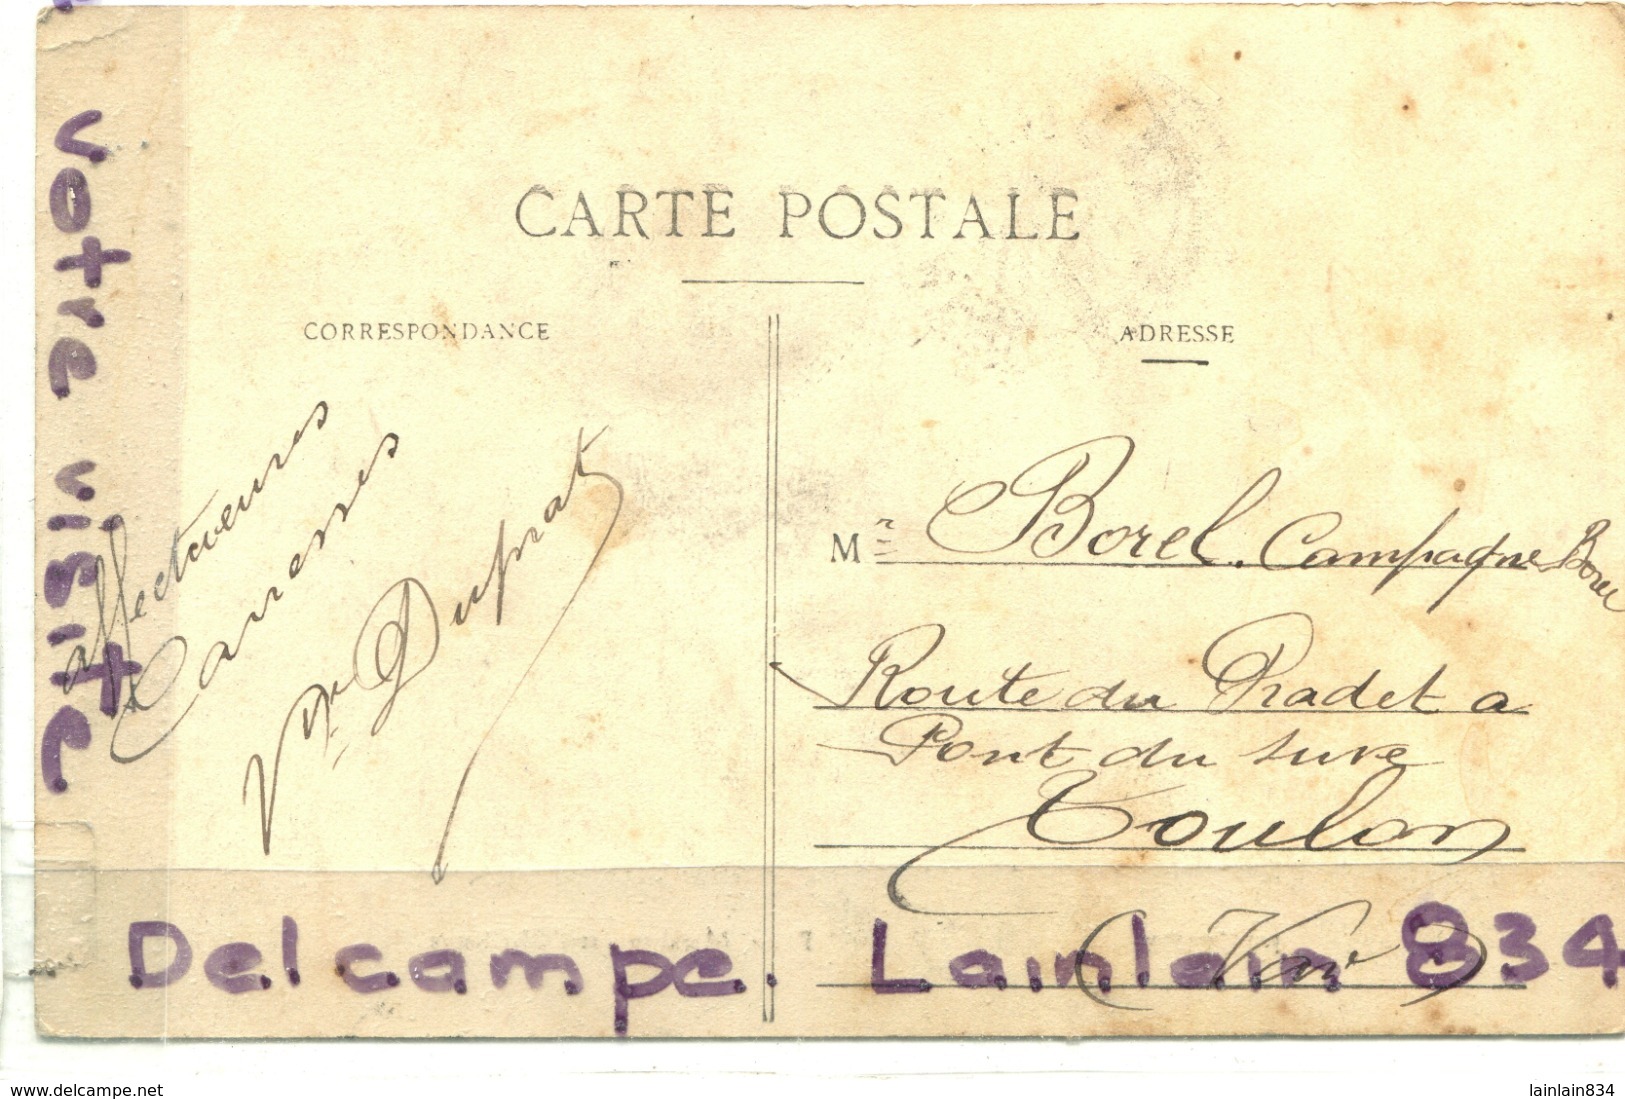 CARTE POSTALE
CORRESPONDANCE
ADRESSE
affectueuses
Caresses
Duprat
Mr Borel. Campagne Borel
Route du Pradet a
Pont du Suve
Toulon
(Var)
votre visite
Delcampe. Lainlain 834
www.delcampe.net
lainlain834